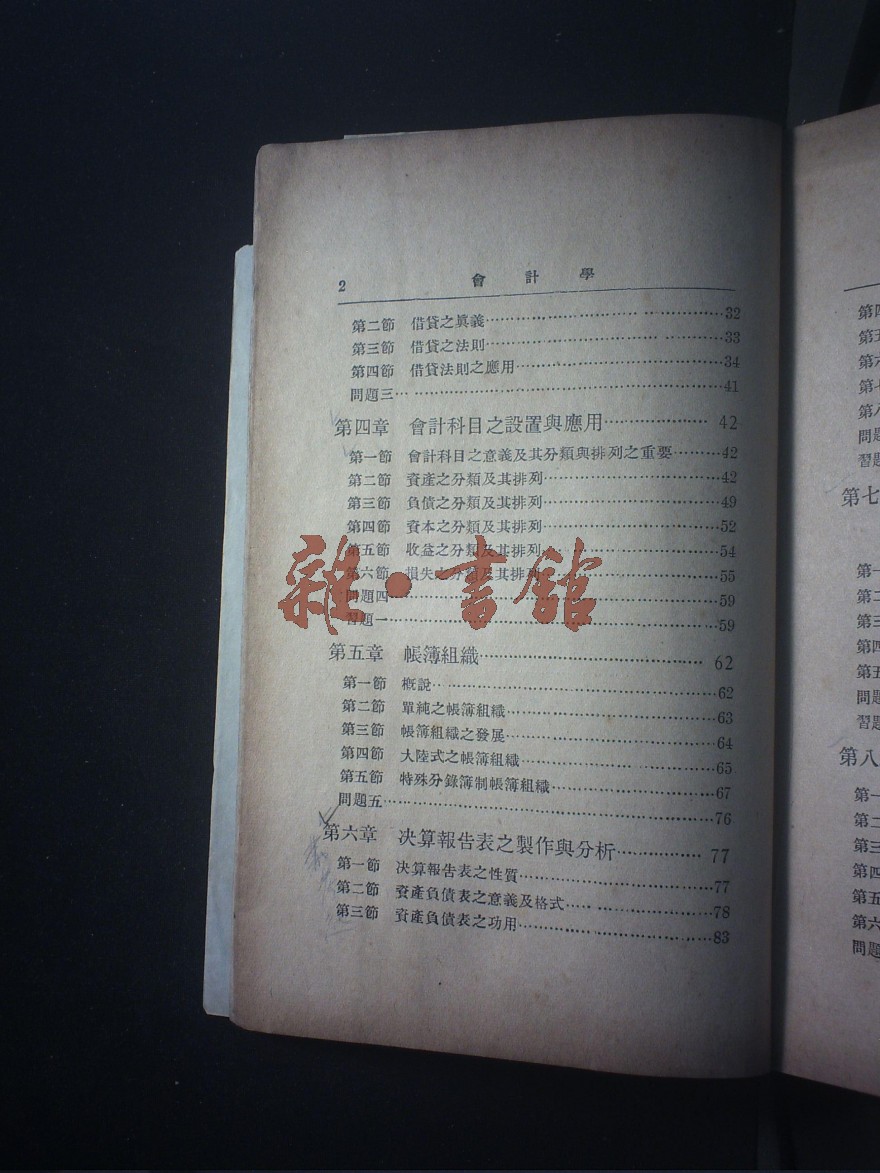 2 會計學
第二節 借貸之眞義…………………………32
第三節 借貸之法則…………………………33
第四節 借貸法則之應用…………………………34
問題三…………………………41
第四章 會計科目之設置與應用…………42
第一節 會計科目之意義及其分類與排列之重要………42
第二節 資產之分類及其排列…………………42
第三節 負債之分類及其排列…………………49
第四節 資本之分類及其排列…………………52
第五節 收益之分類及其排列…………………54
第六節 損失之分類及其排列…………………55
問題四…………………………59
習題一…………………………59
第五章 帳簿組織…………………………62
第一節 概說…………………………62
第二節 單純之帳簿組織…………………………63
第三節 帳簿組織之發展…………………………64
第四節 大陸式之帳簿組織…………………………65
第五節 特殊分錄簿制帳簿組織…………………67
問題五…………………………76
第六章 決算報告表之製作與分析…………77
第一節 決算報告表之性質…………………77
第二節 資產負債表之意義及格式…………………78
第三節 資產負債表之功用…………………83
雜·書館
第七
第一
第二
第三
第四
第五
問題
習題
第八
第一
第二
第三
第四
第五
第六
問題